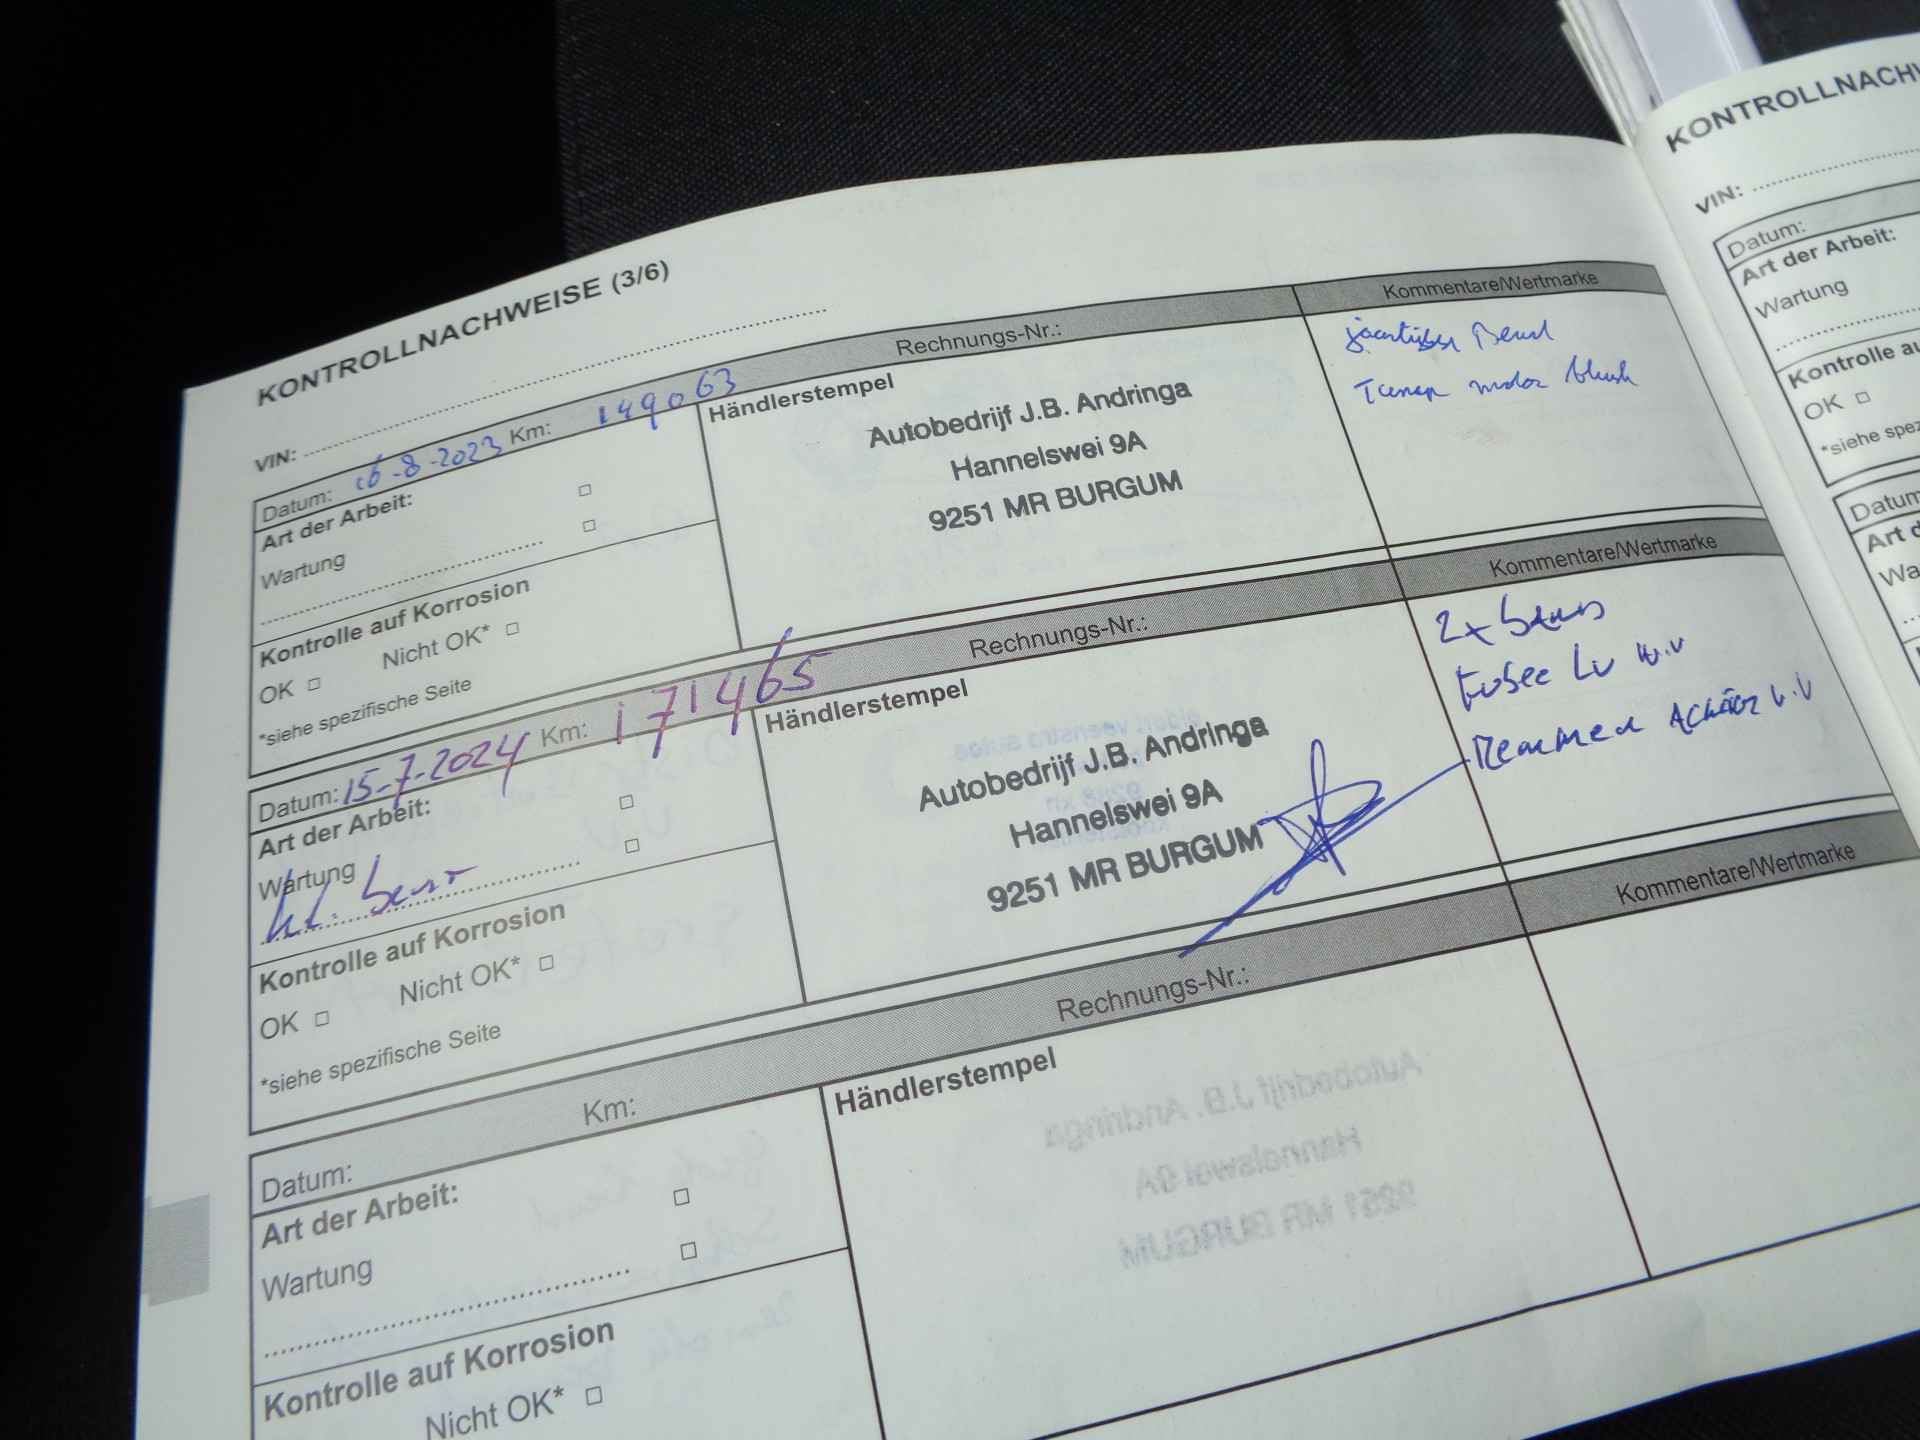 KONTROLLNACHWEISE (3/6)
VIN:
Datum: 16-8-2023 Km: 149063 Rechnungs-Nr.: Kommentare/Wertmarke
Art der Arbeit:
Wartung
Kontrolle auf Korrosion
OK Nicht OK*
*siehe spezifische Seite
Händlerstempel
Autobedrijf J.B. Andringa
Hannelswei 9A
9251 MR BURGUM
motor
Datum: 15-7-2024 Km: 171465 Rechnungs-Nr.: Kommentare/Wertmarke
Art der Arbeit:
Wartung
Kontrolle auf Korrosion
OK Nicht OK*
*siehe spezifische Seite
Händlerstempel
Autobedrijf J.B. Andringa
Hannelswei 9A
9251 MR BURGUM
2x
Datum: Km: Rechnungs-Nr.: Kommentare/Wertmarke
Art der Arbeit:
Wartung
Kontrolle auf Korrosion
Nicht OK*
Händlerstempel
KONTROLLNACHW
VIN:
Datum:
Art der Arbeit:
Wartung
Kontrolle au
OK
*siehe spez
Datum
Art d
Wa